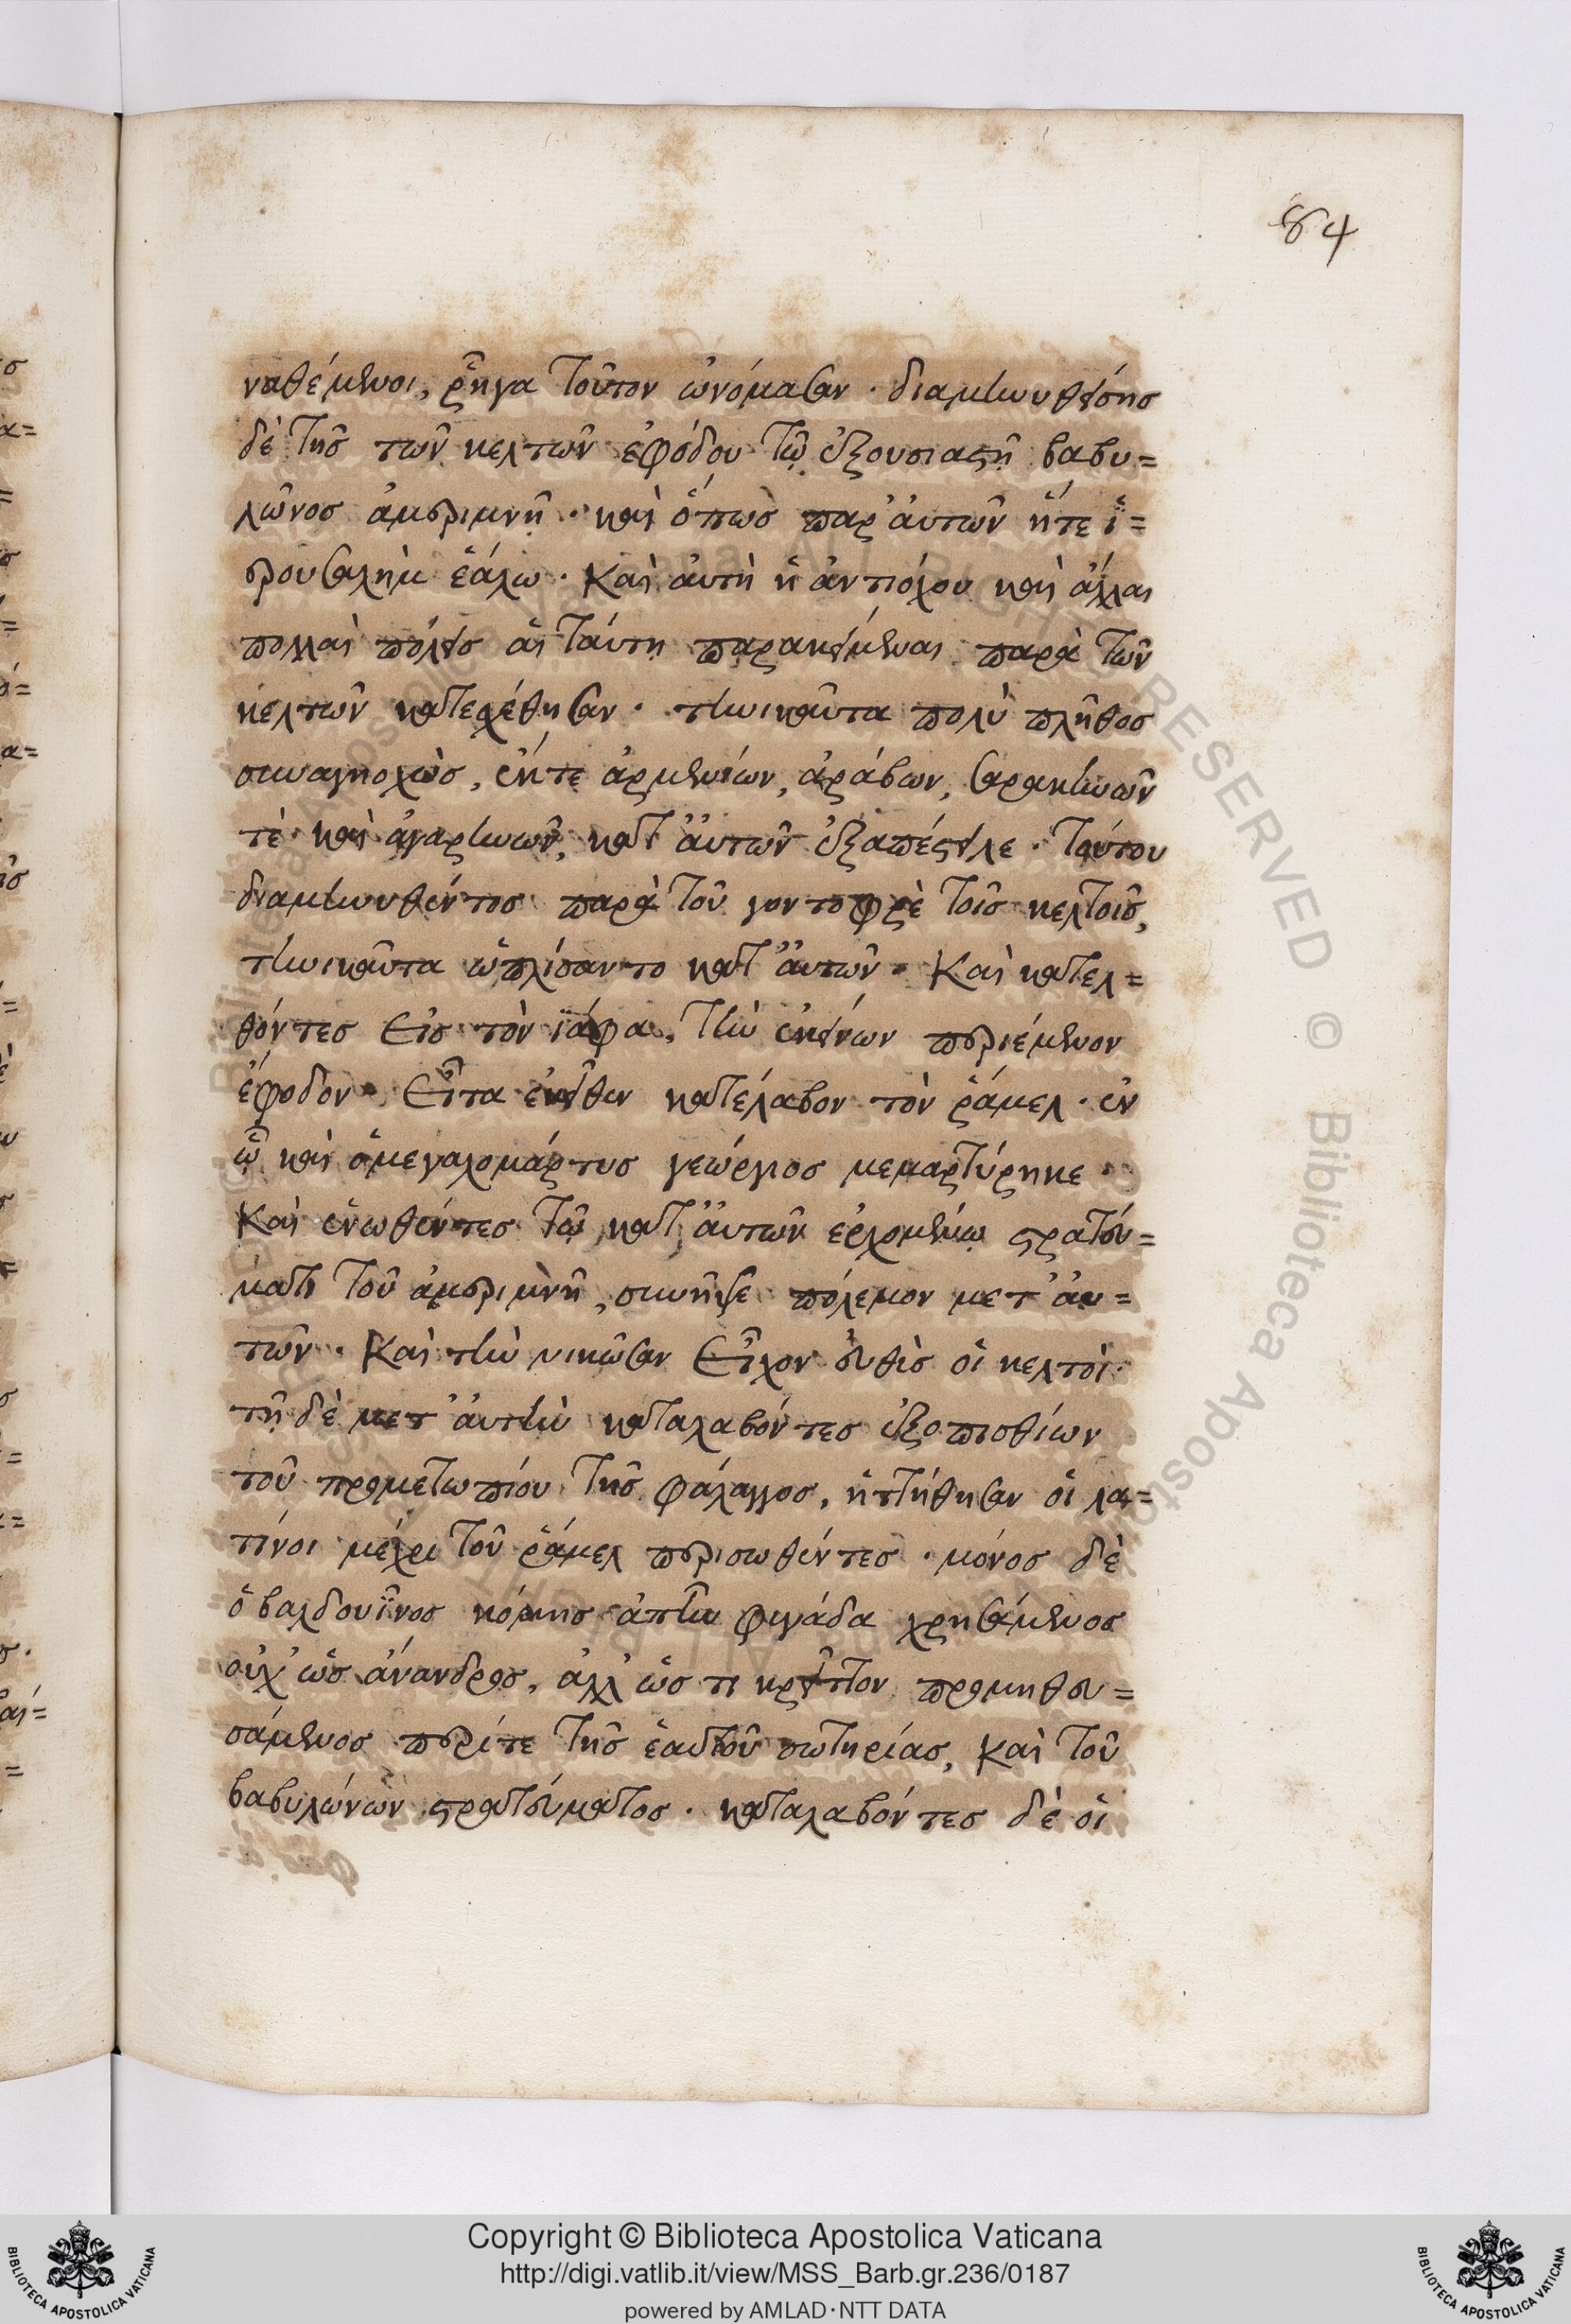 84
ναθέμενοι, ῥῆγα τοῦτον ὠνόμασαν · διαμηνυθείσης
δὲ τῆς τῶν κελτῶν ἐφόδου τῷ ἐξουσιαστῇ βαβυ=
λῶνος ἀμεριμνῇ · καὶ ὅπως παρ' ἀυτῶν ἥτε ἱ=
ερουσαλὴμ ἑάλω · Καὶ ἀυτὴ ἡ ἀντιόχου καὶ ἄλλαι
πολλαὶ πόλεις ἁι ταύτῃ παρακείμεναι παρὰ τῶν
κελτῶν κατεσχέθησαν · τηνικαῦτα πολὺ πλῆθος
συναγηοχὼς, ἔκ τε ἀρμενίων, ἀράβων, σαρακηνῶν
τὲ καὶ ἀγαρηνῶν, κατ' ἀυτῶν ἐξαπέστειλε · Τούτου
διαμηνυθέντος παρὰ τοῦ γοντοφρὲ τοῖς κελτοῖς,
τηνικαῦτα ὡπλίσαντο κατ' ἀυτῶν · Καὶ κατελ=
θόντες Εἰς τὸν ἰάφα, τὴν ἐκείνων περιέμενον
ἔφοδον · Εἶτα ἐκεῖθεν κατέλαβον τὸν ῥάμελ · ἐν
ᾧ καὶ ὁ μεγαλομάρτυς γεώργιος μεμαρτύρηκε ·
Καὶ ἑνωθέντες τῷ κατ' ἀυτῶν ἐρχομένῳ στρατεύ=
ματι τοῦ ἀμεριμνῆ, συνῆψε πόλεμον μετ' ἀυ=
τῶν · Καὶ τὴν νικῶσαν Εἶχον ἐυθὺς οἱ κελτοὶ ·
τῇ δὲ μετ' ἀυτὴν καταλαβόντες ἐξοπισθίων
τοῦ προμετωπίου τῆς φάλαγγος, ἡττήθησαν οἱ λα=
τίνοι μέχρι τοῦ ῥάμελ περισωθέντες · μόνος δὲ
ὁ βαλδουῖνος κόμης ἀπῆν φυγάδα χρησάμενος
οὐχ' ὡς ἄνανδρος, ἀλλ' ὥς τι κρεῖττον προμηθευ=
σάμενος περί τε τῆς ἑαυτοῦ σωτηρίας, Καὶ τοῦ
βαβυλώνων στρατεύματος · καταλαβόντες δὲ οἱ
Copyright © Biblioteca Apostolica Vaticana
http://digi.vatlib.it/view/MSS_Barb.gr.236/0187
powered by AMLAD·NTT DATA